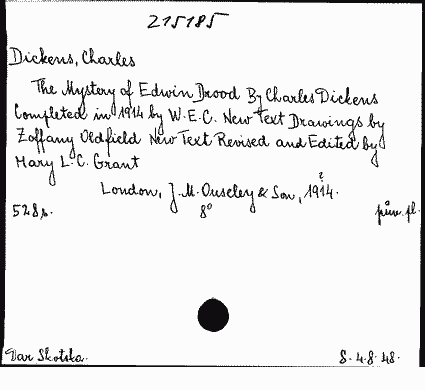 215185
Dickens, Charles
The Mystery of Edwin Drood By Charles Dickens
Completed in 1914 by W.E.C. New Text Drawings by
Zoffany Oldfield New Text Revised and Edited by
Mary L.C. Grant
London, J.M. Ouseley & Son, 1914.
?
528s. 8° pův. pl.
Dar Skotska. S. 4.8.48.